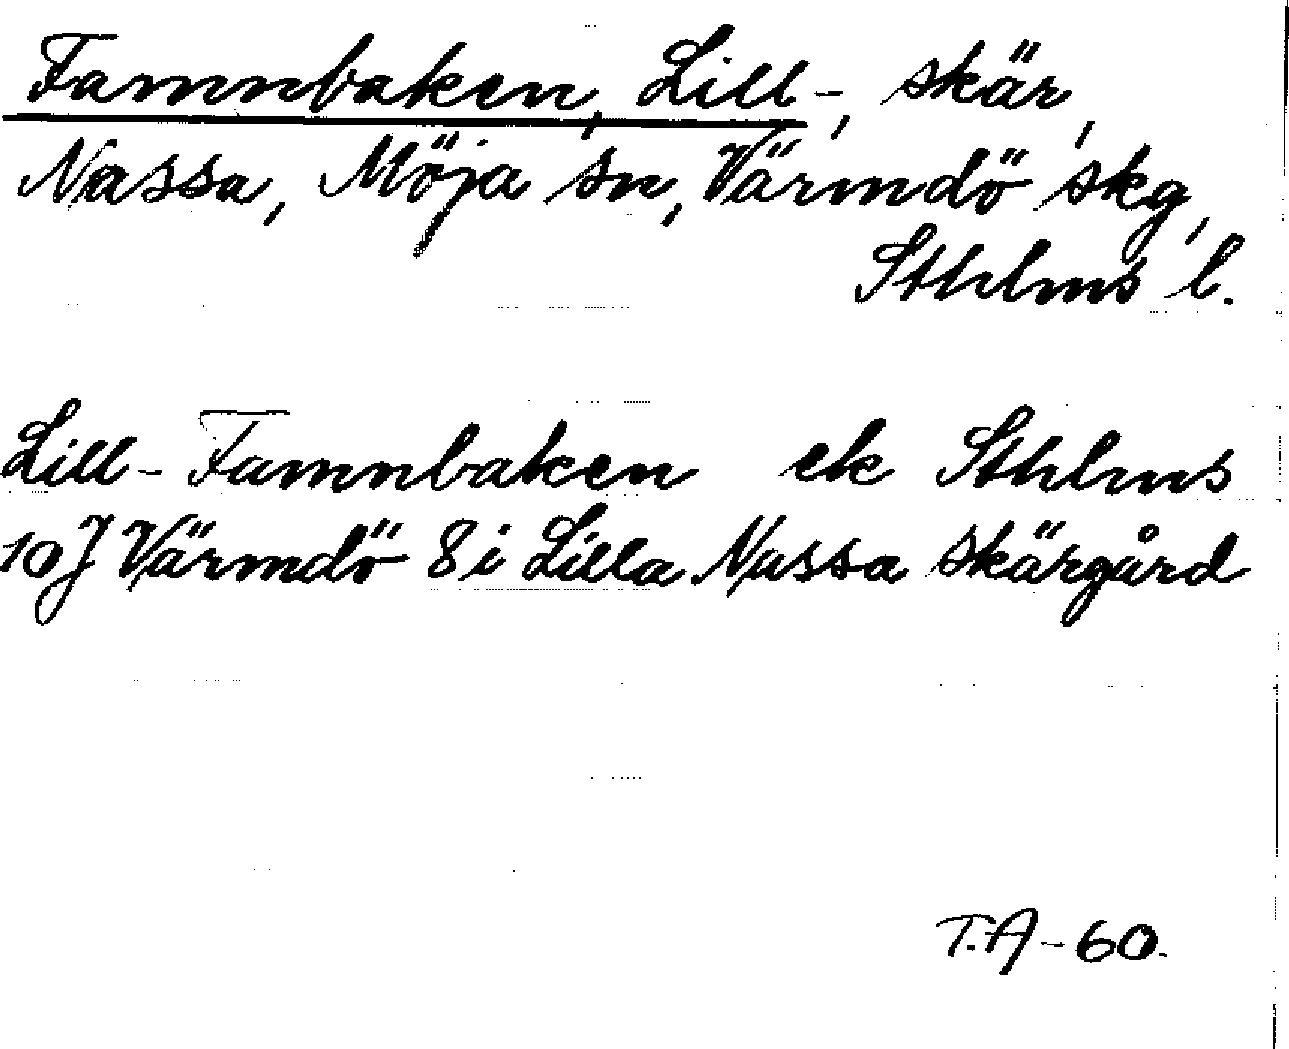 Famnbaken, Lill-, skär,
Nassa, Möja sn, Värmdö skg,
Sthlms l.
Lill-Famnbaken ek Sthlms
10J Värmdö 8 i Lilla Nassa skärgård
T.A-60.